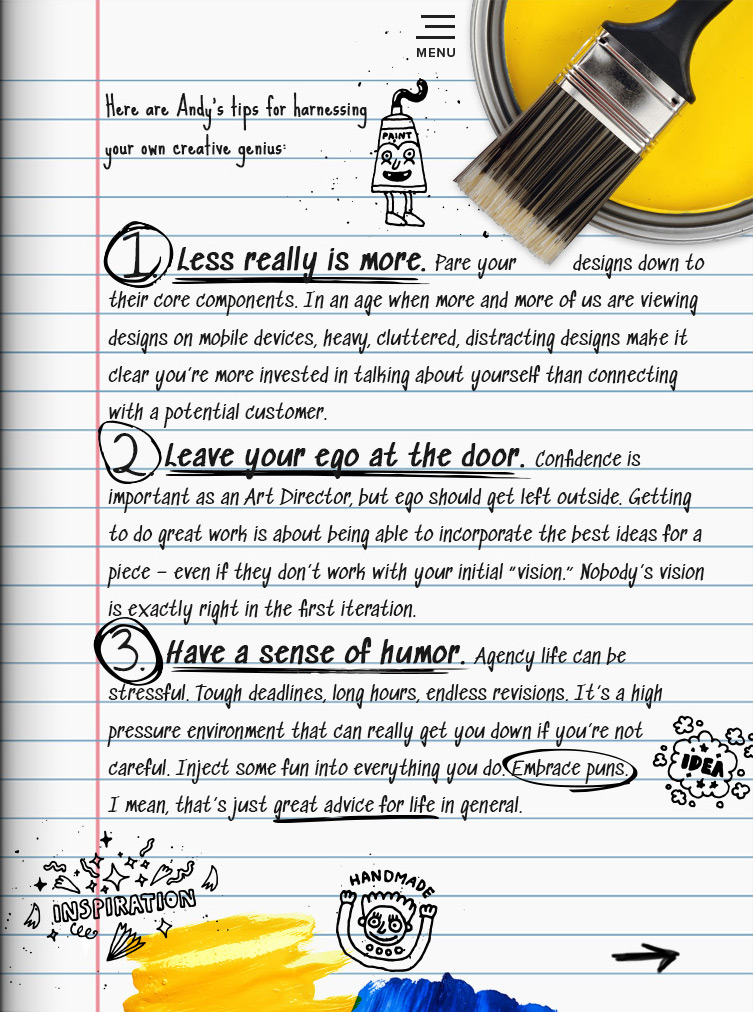 MENU
Here are Andy's tips for harnessing
your own creative genius:
PAINT
1. Less really is more. Pare your designs down to
their core components. In an age when more and more of us are viewing
designs on mobile devices, heavy, cluttered, distracting designs make it
clear you're more invested in talking about yourself than connecting
with a potential customer.
2 Leave your ego at the door. Confidence is
important as an Art Director, but ego should get left outside. Getting
to do great work is about being able to incorporate the best ideas for a
piece – even if they don't work with your initial "vision." Nobody's vision
is exactly right in the first iteration.
3. Have a sense of humor. Agency life can be
stressful. Tough deadlines, long hours, endless revisions. It's a high
pressure environment that can really get you down if you're not
careful. Inject some fun into everything you do. Embrace puns.
IDEA
I mean, that's just great advice for life in general.
HANDMADE
INSPIRATION